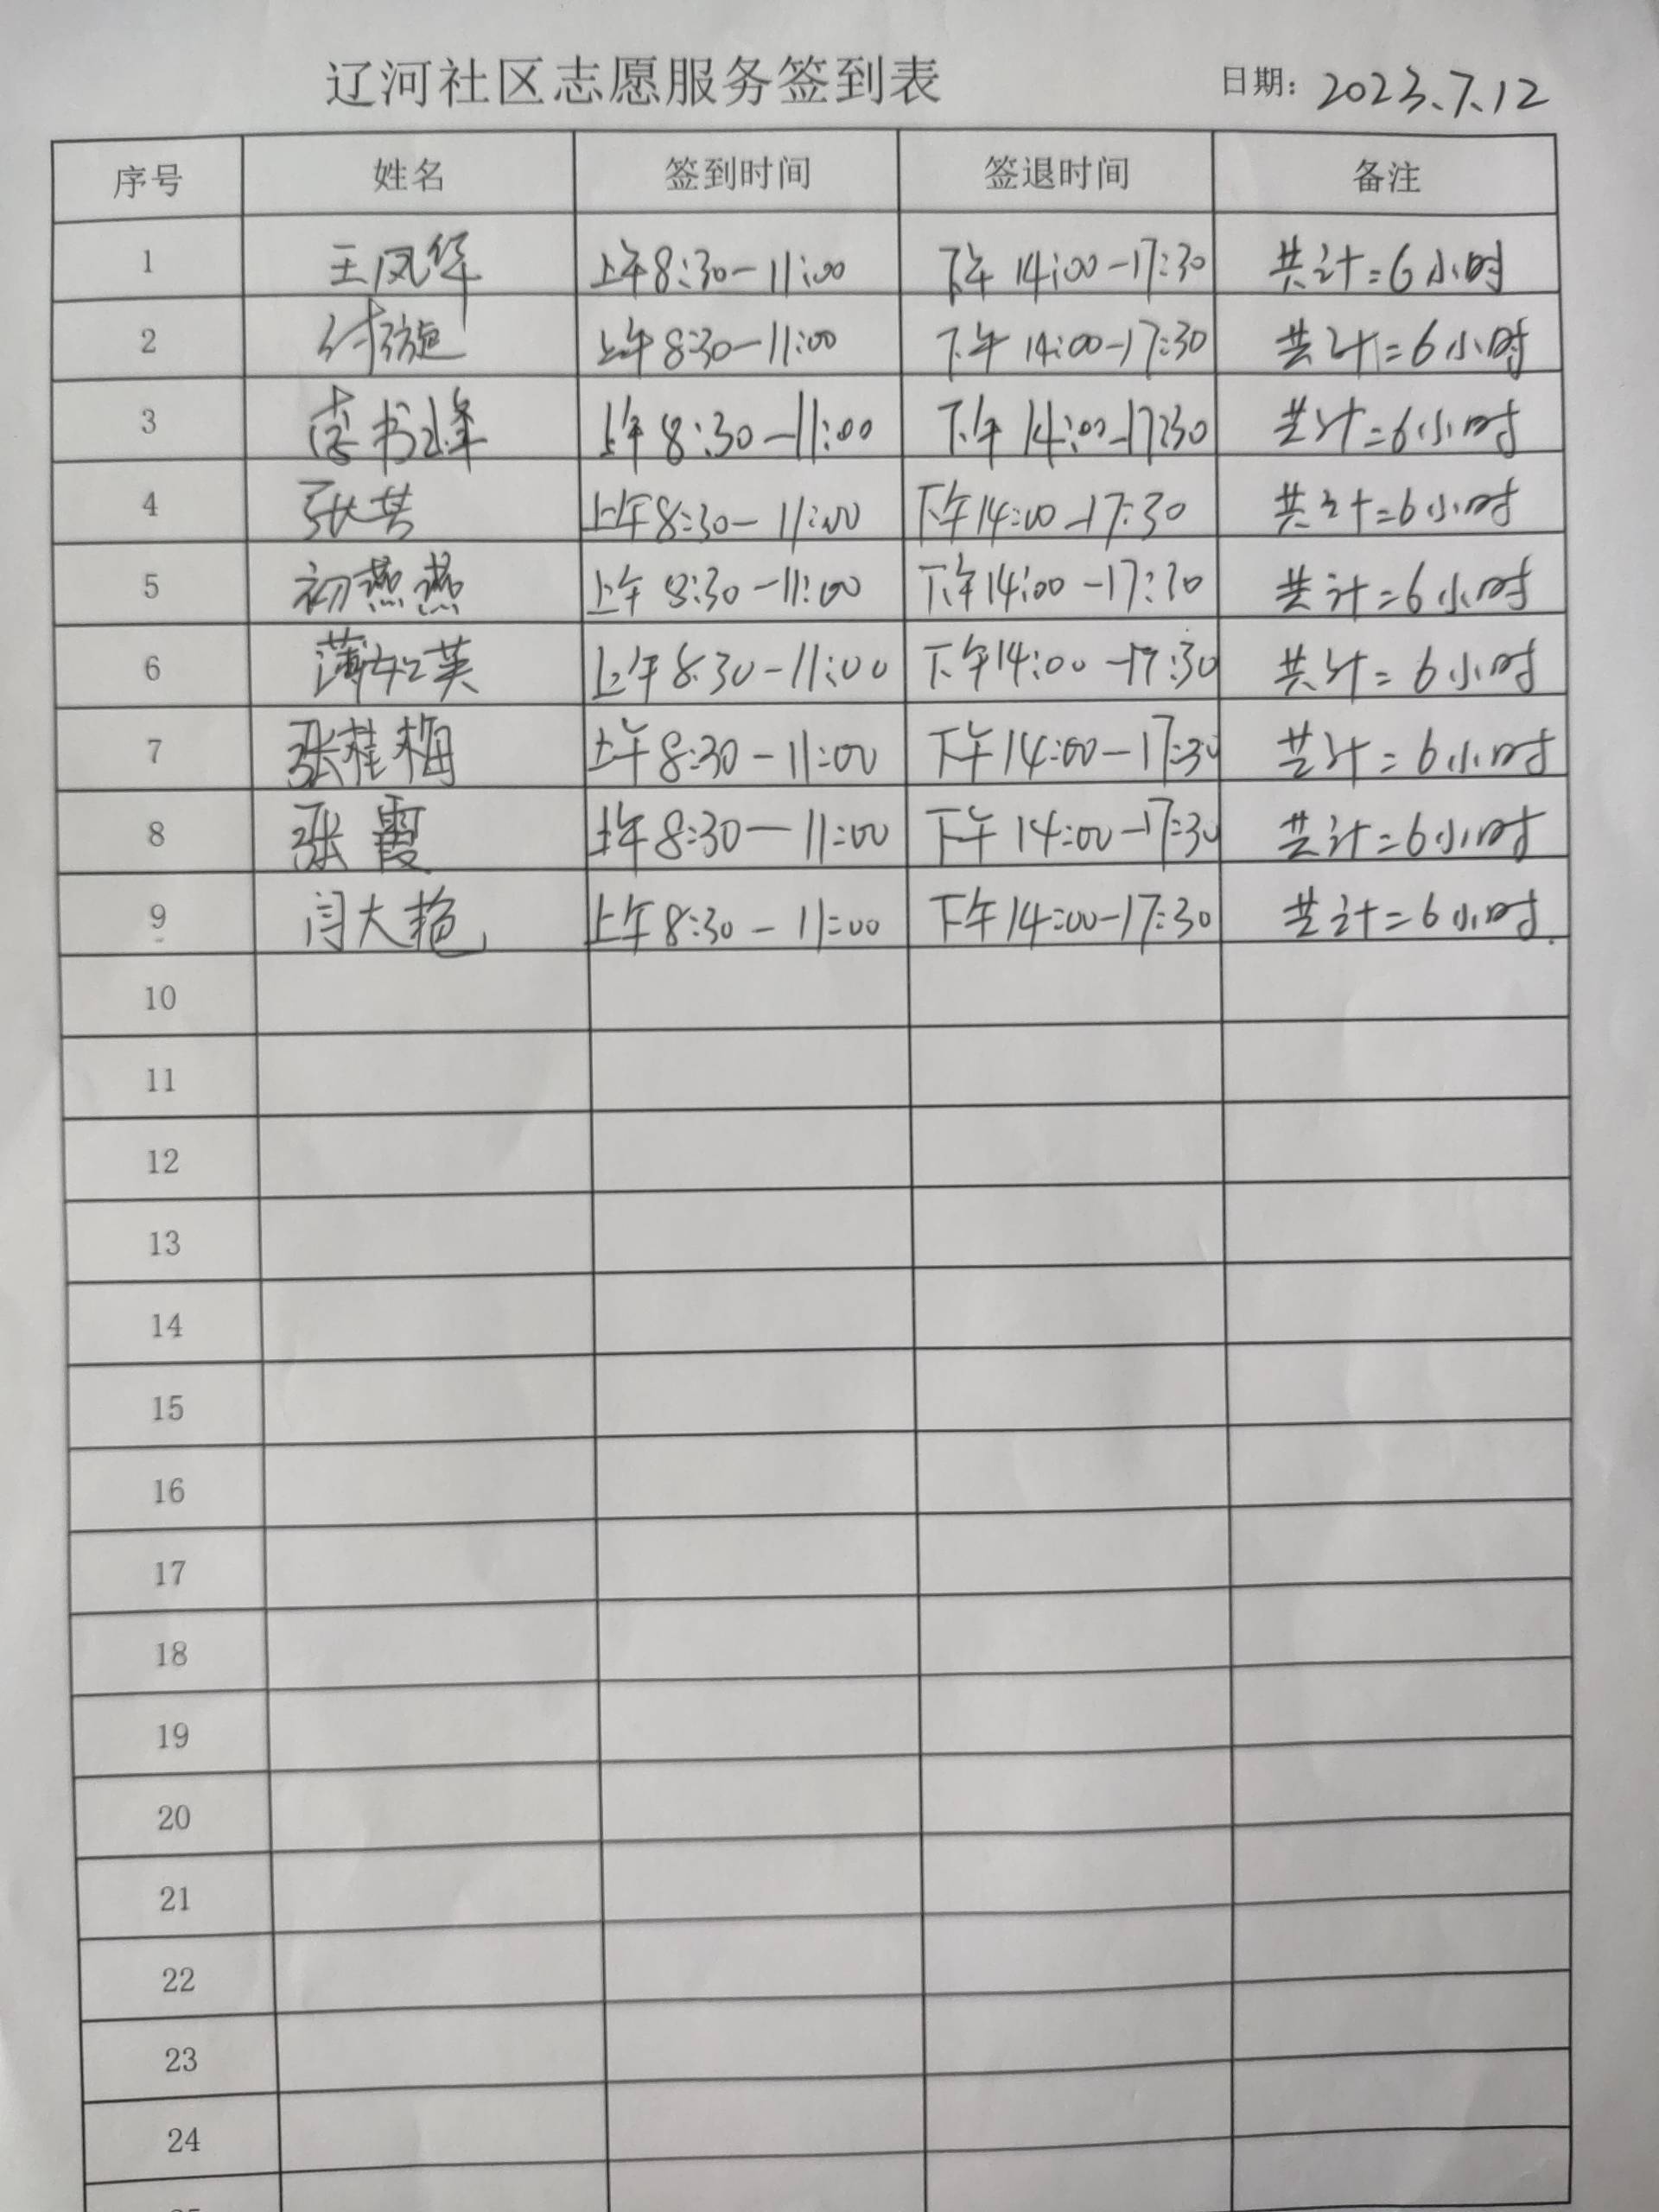 辽河社区志愿服务签到表 日期: 2023.7.12
序号 姓名 签到时间 签退时间 备注
1 王凤华 上午8:30-11:00 下午14:00-17:30 共计=6小时
2 付旋 上午8:30-11:00 下午14:00-17:30 共计=6小时
3 李书峰 上午8:30-11:00 下午14:00-17:30 共计=6小时
4 张芳 上午8:30-11:00 下午14:00-17:30 共计=6小时
5 初燕燕 上午8:30-11:00 下午14:00-17:30 共计=6小时
6 薄松英 上午8:30-11:00 下午14:00-17:30 共计=6小时
7 张桂梅 上午8:30-11:00 下午14:00-17:30 共计=6小时
8 张霞 上午8:30-11:00 下午14:00-17:30 共计=6小时
9 闫大艳 上午8:30-11:00 下午14:00-17:30 共计=6小时
10
11
12
13
14
15
16
17
18
19
20
21
22
23
24